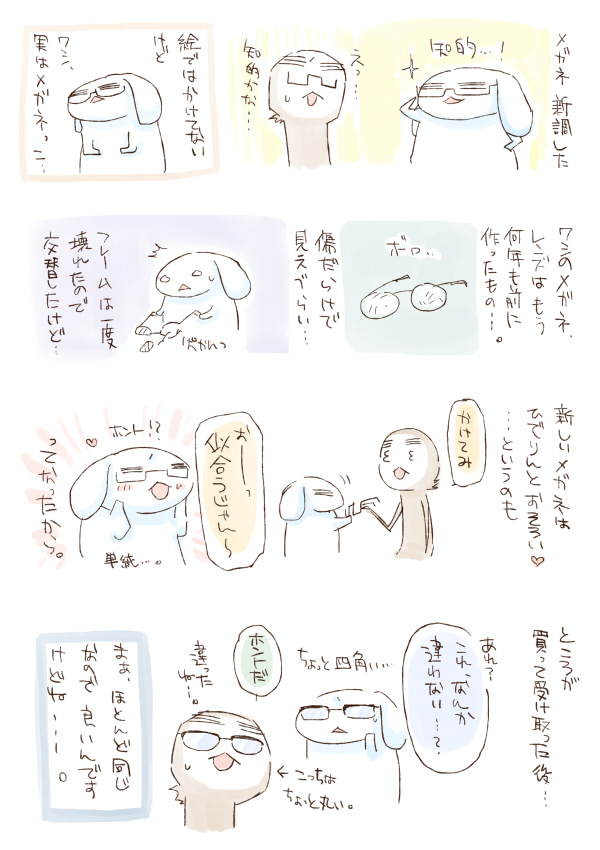 メガネ新調した
知的…!
えっ…
知的かな…
絵ではかけてない
けど
ワシ、
実はメガネっこ…
ワシのメガネ、
レンズはもう
何年も前に
作ったもの…。
ボロ…
傷だらけで
見えづらい…
フレームは一度
壊れたので
交替したけど…
パカンっ
新しいメガネは
ひでりんとおそろい♥
…というのも
かけてみ
おーっ
似合うじゃん〜
ホント!?
♥
単純…。
ってかったから。
ところが
買って受け取った後…
あれ?
これ、なんか
違わない…?
ちょっと四角い…
ホントだ
違った
ね…。
←こっちは
ちょっと丸い。
まぁ、ほとんど同じ
なので良いんです
けどねーー。